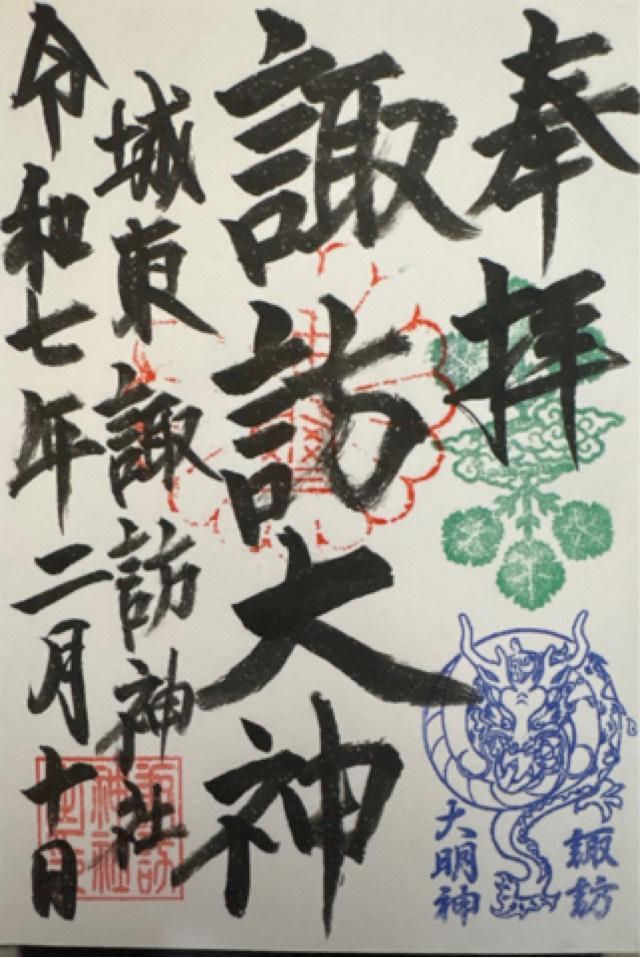 奉拝
諏訪大神
城東諏訪神社
令和七年二月十日
諏訪
大明神